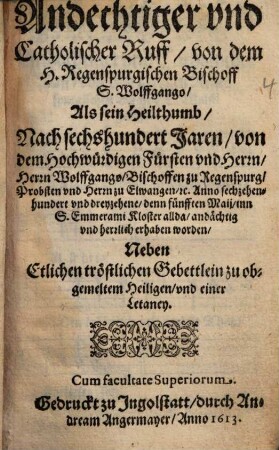 Andechtiger vnd
Catholischer Ruff / von dem
H. Regenspurgischen Bischoff
S. Wolffgango /
Als sein Heilthumb /
Nach sechshundert Jaren / von
dem Hochwürdigen Fürsten vnd Herrn /
Herrn Wolffgango / Bischoffen zu Regenspurg /
Probsten vnd Herrn zu Elwangen / ꝛc. Anno sechzehen-
hundert vnd dreyzehene / denn fünfften Maij / inn
S. Emmerami Kloster allda / andächtig
vnd herzlich erhaben worden /
Neben
Etlichen tröstlichen Gebettlein zu ob-
gemeltem Heiligen / vnd einer
Letaney.
Cum facultate Superiorum.
Gedruckt zu Ingolstatt / durch An-
dream Angermayer / Anno 1613.